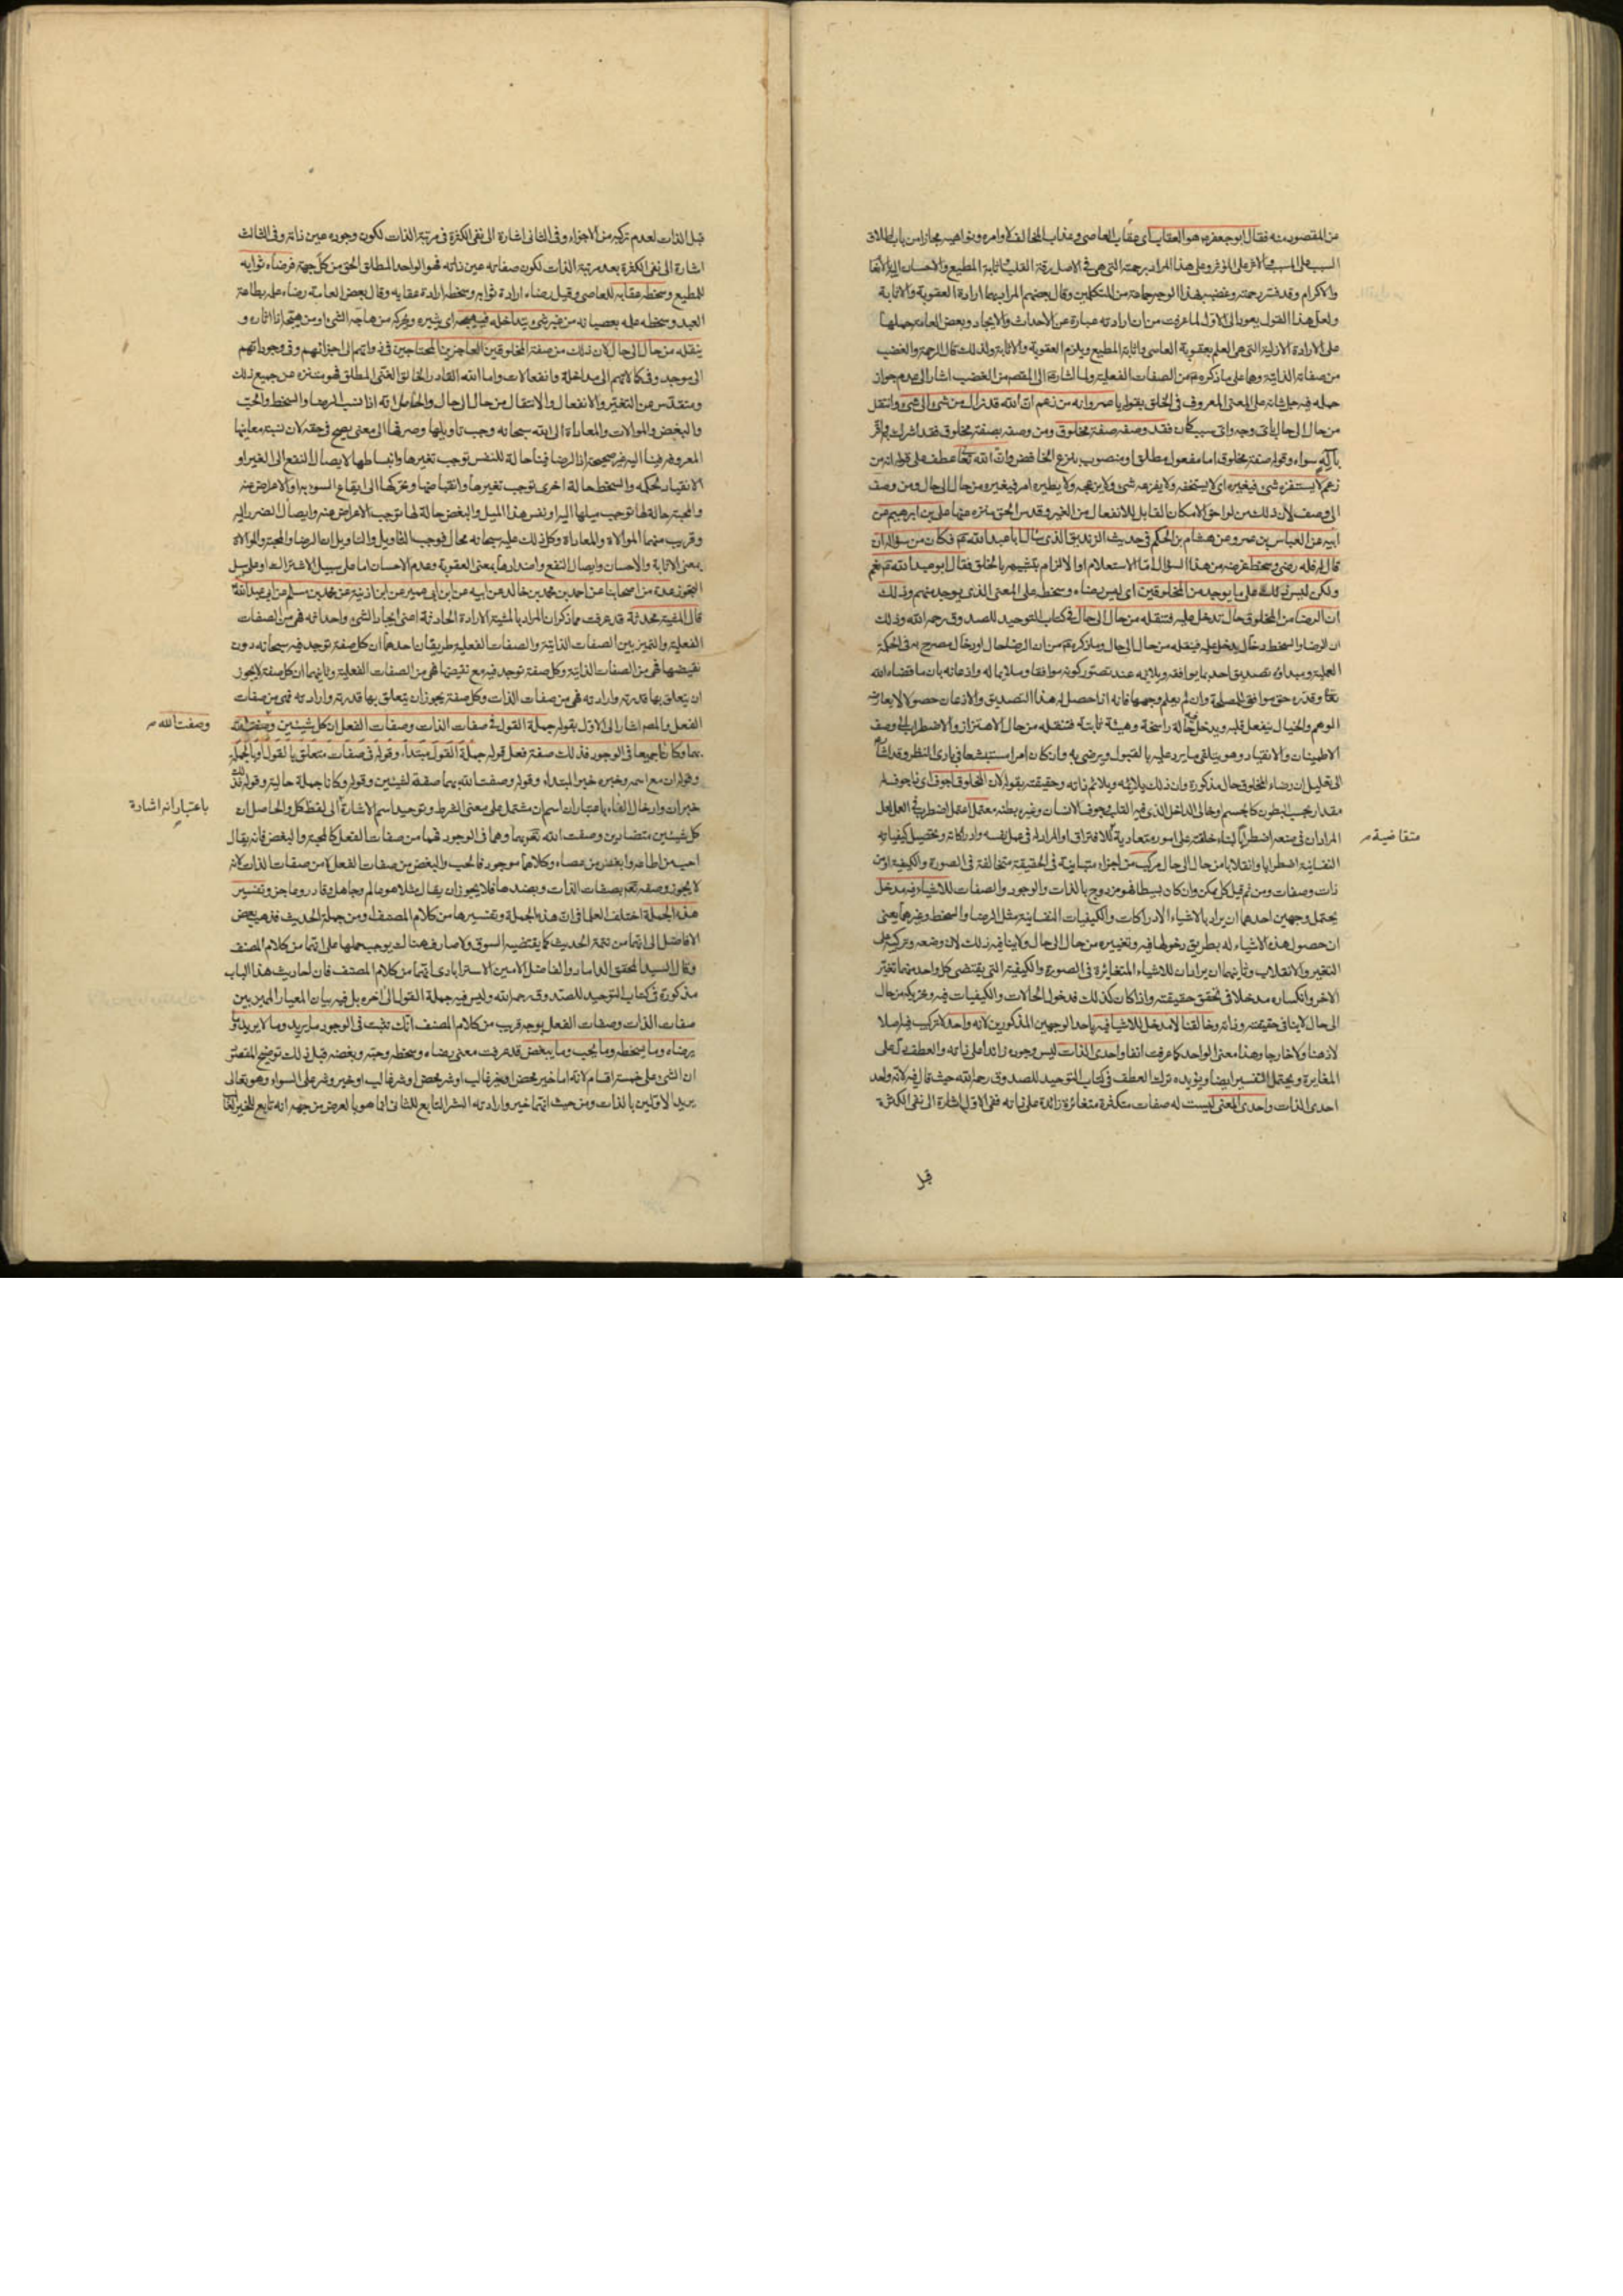 عن المقصود منه فقال ابو جعفر ع هو العقاب اى عقاب العاصى وعذاب المخالف لاوامره ونواهيه مجازا من باب اطلاق
السبب على المسبب والاثر على المؤثر وعلى هذا المراد برحمته التى هى فى الاصل رقة القلب اثابة المطيع والاحسان اليه والانعام
والاكرام وقد فسر رحمته وغضبه بهذا الوجه جماعة من المتكلمين وقال بعضهم المراد بهما ارادة العقوبة والاثابة
ولعل هذا القول يعود الى الاول لما عرفت من ان ارادته عبارة عن الاحداث والايجاد وبعض العامة حملها
على الارادة الازلية التى هى العلم بعقوبة العاصى واثابة المطيع ويلزم العقوبة والاثابة ولذلك قال الرحمة والغضب
من صفاته الذاتية وهما على ما ذكره ع من الصفات الفعلية ولما اشار الى المقصود من الغضب اشار الى عدم جواز
حمله فيه جل شانه على المعنى المعروف فى الخلق بقوله يا عمرو انه من زعم ان الله قد زال من شئ الى شئ وانتقل
من حال الى حال باى وجه واى سبب كان فقد وصفه صفة مخلوق ومن وصفه بصفة مخلوق فقد اشرك
سواء وقوله صفة مخلوق اما مفعول مطلق او منصوب بنزع الخافض وان الله تعالى عطف على قوله انه من
زعم لا يستفزه شئ فيغيره اى لا يستخفه ولا يفزعه شئ ولا يزعجه ولا يطيره امر فيغيره من حال الى حال ومن وصف
الى وصف لان ذلك من لواحق الامكان القابل للانفعال من الغير وقدس الحق منزه عنها على بن ابرهيم عن
ابيه عن العباس بن عمرو عن هشام بن الحكم فى حديث الزنديق الذى سال ابا عبد الله ع فكان من سؤاله ان
قال له فله رضى وسخط غرضه من هذا السؤال اما الاستعلام او الالزام بتشبيهه بالخلق فقال ابو عبد الله ع نعم
ولكن ليس ذلك على ما يوجد من المخلوقين اى ليس رضاه وسخطه على المعنى الذى يوجد منهم وذلك
ان الرضا من المخلوق حال تدخل عليه فتنقله من حال الى حال فى كتاب التوحيد للصدوق رحمه الله وذلك
ان الرضا والسخط دخال يدخل عليه فينقله من حال الى حال وما ذكره ع من ان الرضا حال او دخال مصرح به فى الحكمة
العملية ومبداؤه تصديق احد بما يوافقه ويلايمه عند تصور كونه موافقا وملايما له واذعانه بان ما قضاه الله
تعالى وقدره حق موافق للمصلحة وان لم يعلم وجهها فانه اذا حصل له هذا التصديق والاذعان حصولا لا يعارضه
الوهم والخيال ينفعل قلبه ويدخل فيه حالة راسخة وهيئة ثابتة فتنقله من حال الاهتزاز والاضطراب الى وصف
الاطمينان والانقياد وهو يتلقى ما يرد عليه بالقبول ويرضى به وان كان امرا مستبشعا فى بادى النظر وقد اشار
الى تعليل ان رضاء المخلوق حال مذكورة وان ذلك يلايمه ويلائم ذاته وحقيقته بقوله لان المخلوق اجوف اى ذا جوف له
مقدار يجب البطون كالجسم وخالى الداخل الذى فيه القلب وجوف الانسان وغيره بطنه معتمل اعتمل اضطرب فى العمل لعل
المراد ان فى صنعه اضطرابا لبناء خلقته على امور متعادية للافتراق والمراد له فى عمل نفسه وادراكاته وتحصيل كيفياته
النفسانية اضطرابا وانقلابا من حال الى حال مركب من اجزاء متباينة فى الحقيقة متخالفة فى الصورة والكيفية او من
ذات وصفات ومن ثم قيل كل ممكن وان كان بسيطا فهو مزدوج بالذات والوجود والصفات للاشياء فيه مدخل
يحتمل وجهين احدهما ان يراد بالاشياء الادراكات والكيفيات النفسانية مثل الرضا والسخط وغيرهما يعنى
ان حصول هذه الاشياء له بطريق دخولها فيه وتغييره من حال الى حال ولا ينافيه ذلك لان وضعه وتركيبه على
التغير والانقلاب وثانيهما ان يراد ان للاشياء المتغايرة فى الصورة والكيفية التى يقتضى كل واحد منها تغير
الاخر وانكساره مدخلا فى تحقق حقيقته واذا كان كذلك فدخول الحالات والكيفيات فيه وتحريكه من حال
الى حال لا ينافى حقيقته وذاته وخالقنا لا مدخل للاشياء فيه باحد الوجهين المذكورين لانه واحد لا تركيب فيه اصلا
لا ذهنا ولا خارجا وهذا معنى الواحد كما عرفت انفا واحدى الذات ليس وجوده زائدا على ذاته والعطف يدل على
المغايرة ويحتمل التفسير ايضا ويؤيده ترك العطف فى كتاب التوحيد للصدوق رحمه الله حيث قال فيه لانه واحد
احدى الذات واحدى المعنى ليست له صفات متكثرة متغائرة زائدة على ذاته ففى الاول اشارة الى نفى الكثرة
متقاضية
قبل
قبل الذات لعدم تركبه من الاجزاء وفى الثانى اشارة الى نفى الكثرة فى مرتبة الذات لكون وجوده عين ذاته وفى الثالث
اشارة الى نفى الكثرة بعد مرتبة الذات لكون صفاته عين ذاته فهو الواحد المطلق الحق من كل جهة فرضاه ثوابه
للمطيع وسخطه عقابه للعاصى وقيل رضاه ارادة ثوابه وسخطه ارادة عقابه وقال بعض العامة رضاه علمه بطاعة
العبد وسخطه علمه بعصيانه من غير شئ يتداخله فيهيجه اى يثيره ويحركه من هاجه الشئ او من هيجه اذا اثاره و
ينقله من حال الى حال لان ذلك من صفة المخلوقين العاجزين المحتاجين فى ذواتهم الى اجزائهم وفى وجوداتهم
الى موجد وفى كمالاتهم الى مداخلة وانفعالات واما الله القادر الخالق الغنى المطلق فهو منزه عن جميع ذلك
ومتقدس عن التغير والانفعال والانتقال من حال الى حال والحاصل انه اذا نسب الرضا والسخط والحب
والبغض والموالات والمعاداة الى الله سبحانه وجب تاويلها وصرفها الى معنى يصح فى حقه لان نسبة معانيها
المعروفة فينا اليه غير صحيحة اذ الرضا فينا حالة للنفس توجب تغيرها وانبساطها لايصال النفع الى الغير او
الانقياد لحكمه والسخط حالة اخرى توجب تغيرها وانقباضها وتحركها الى ايقاع السوء به او الاعراض عنه
والمحبة حالة لها توجب ميلها اليه او نفس هذا الميل والبغض حالة لها توجب الاعراض عنه وايصال الضرر اليه
وقريب منهما الموالاة والمعاداة وكل ذلك عليه سبحانه محال فوجب التاويل والتاويل ان الرضا والمحبة والموالاة
بمعنى الاثابة والاحسان وايصال النفع واضدادها بمعنى العقوبة وعدم الاحسان اما على سبيل الاشتراك او على سبيل
التجوز عدة من اصحابنا عن احمد بن محمد بن خالد عن ابيه عن ابن ابى عمير عن ابن اذينة عن محمد بن مسلم عن ابى عبد الله ع
قال المشية محدثة قد عرفت ما ذكر ان المراد بالمشية الارادة الحادثة اعنى ايجاد الشئ واحداثه فهى من الصفات
الفعلية والتميز بين الصفات الذاتية والصفات الفعلية طريقان احدهما ان كل صفة توجد فيه سبحانه دون
نقيضها فهى من الصفات الذاتية وكل صفة توجد فيه مع نقيضها فهى من الصفات الفعلية وثانيهما ان كل صفة لا يجوز
ان يتعلق بها قدرته وارادته فهى من صفات الذات وكل صفة يجوز ان يتعلق بها قدرته وارادته فهى من صفات
الفعل والمصنف اشار الى الاول بقوله جملة القول فى صفات الذات وصفات الفعل ان كل شيئين وصفت الله
بهما وكانا جميعا فى الوجود فذلك صفة فعل قوله جملة القول مبتداء وقوله فى صفات متعلق بالقول او بالجملة
وقوله ان مع اسمه وخبره خبر المبتداء وقوله وصفت الله بهما صفة لشيئين وقوله وكانا جملة حالية وقوله فذلك
خبر ان وادخال الفاء باعتبار ان اسم ان مشتمل على معنى الشرط وتوحيد اسم الاشارة الى لفظ كل والحاصل ان
كل شيئين متضادين وصفت الله تعالى بهما وهما فى الوجود فهما من صفات الفعل كالمحبة والبغض فانه يقال
احب من اطاعه وابغض من عصاه وكلاهما موجود فالحب والبغض من صفات الفعل لا من صفات الذات لانه
لا يجوز وصفه تعالى بصفات الذات وبضدها فلا يجوز ان يقال مثلا هو عالم وجاهل وقادر وعاجز وتفسير
هذه الجملة اختلف العلماء فى ان هذه الجملة وتفسيرها من كلام المصنف او من جملة الحديث فذهب بعض
الافاضل الى انها من تتمة الحديث كما يقتضيه السوق ولا صارف هناك يوجب حملها على انها من كلام المصنف
وقال السيد المحقق الداماد والفاضل الامين الاسترابادى انها من كلام المصنف فان احاديث هذا الباب
مذكورة فى كتاب التوحيد للصدوق رحمه الله وليس فيه جملة القول الى اخره بل فيه بيان المعيار المميز بين
صفات الذات وصفات الفعل بوجه قريب من كلام المصنف انك تثبت فى الوجود ما يريد وما لا يريد وما
يرضاه وما يسخطه وما يحب وما يبغض قد عرفت معنى رضاه وسخطه وحبه وبغضه قبل ذلك توضيح المقصد
ان الشئ على خمسة اقسام لانه اما خير محض او خير غالب او شر محض او شر غالب او خير وشر على السواء وهو تعالى
يريد الاولين بالذات ومن حيث انهما خير وارادته الشر التابع للثانى انما هو بالعرض من جهة انه تابع للخير
وصفت الله
باعتبار انه اشارة